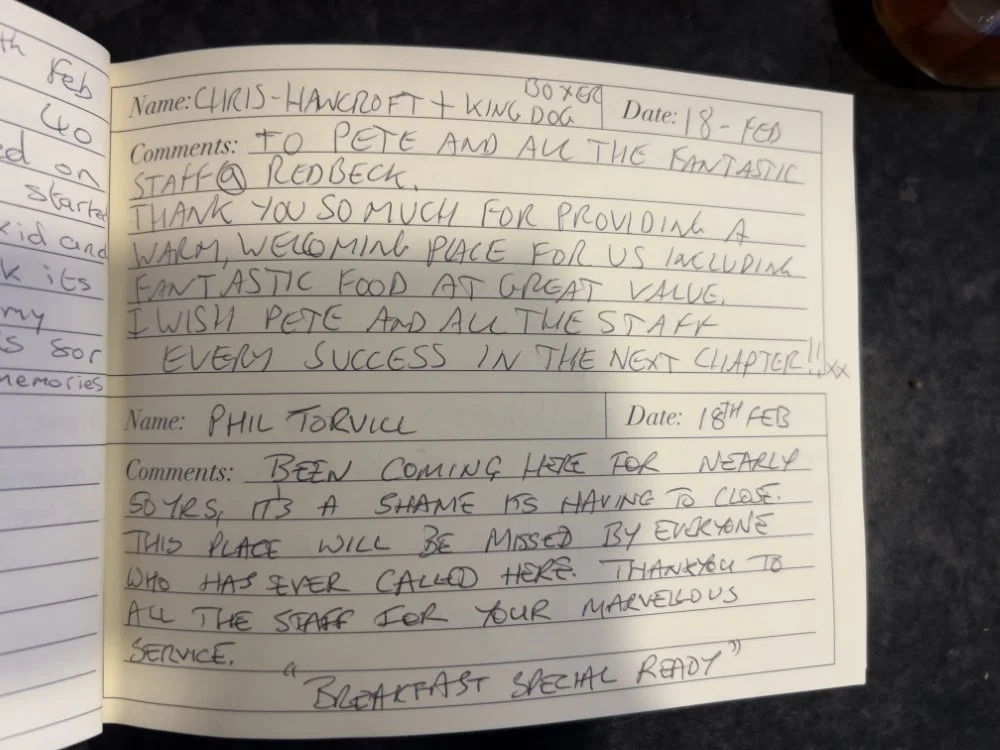 th Feb
40
ed on
started
kid and
k its
my
s sor
memories
Name: CHRIS-HAWCROFT + KING BOXER DOG Date: 18-FEB
Comments: TO PETE AND ALL THE FANTASTIC
STAFF @ REDBECK.
THANK YOU SO MUCH FOR PROVIDING A
WARM, WELCOMING PLACE FOR US INCLUDING
FANTASTIC FOOD AT GREAT VALUE.
I WISH PETE AND ALL THE STAFF
EVERY SUCCESS IN THE NEXT CHAPTER!! xx
Name: PHIL TORVILL Date: 18TH FEB
Comments: BEEN COMING HERE FOR NEARLY
50 YRS, IT'S A SHAME ITS HAVING TO CLOSE.
THIS PLACE WILL BE MISSED BY EVERYONE
WHO HAS EVER CALLED HERE. THANKYOU TO
ALL THE STAFF FOR YOUR MARVELLOUS
SERVICE.
"BREAKFAST SPECIAL READY"